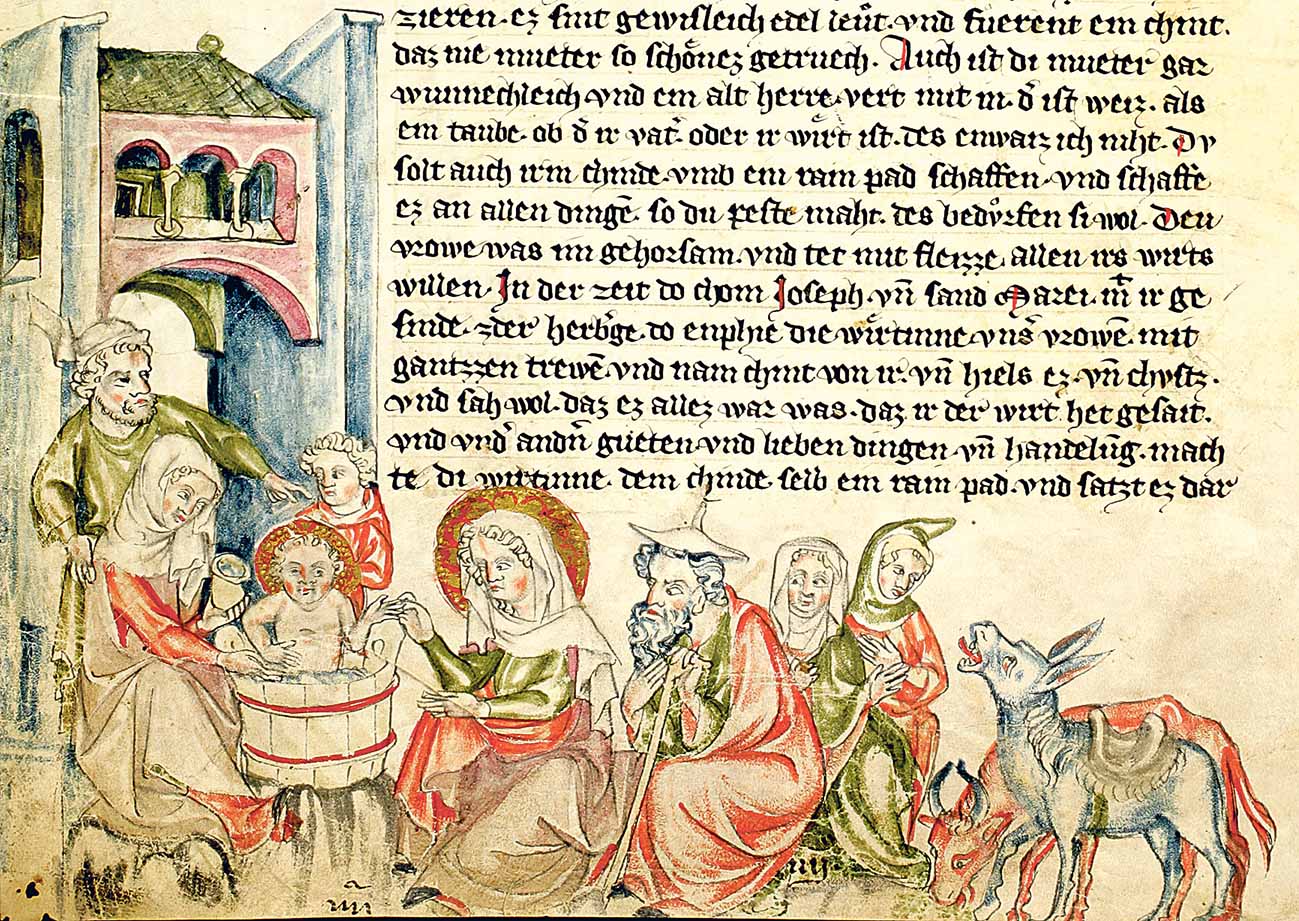 zieren · ez sint gewisleich edel leůt · vnd fuerent ein chint ·
daz nie mueter so schoͤnez getruech · Auch ist di mueter gar
wunnechleich vnd ein alt herre · vert mit in · d̛ ist weiz · als
ein taube · ob d̛ ir vat̛ · oder ir wůrt ist · des enwaiz ich niht · Dv
solt auch irm chinde · vmb ein rain pad schaffen · vnd schaffe
ez an allen dingē · so du peste maht · des beduͦrfen si wol · Deu
vrowe was im gehorsam · vnd tet mit fleizze · allen irs wirts
willen · In der zeit do chom Joseph · vn̄ sand Marei · mͭ ir ge
sinde · zder herb̛ge · do enphie die wůrtinne vns̛ vrowē · mit
gantzzen trewē · vnd nam chint von ir · vn̄ hiels ez · vn̄ chvstz ·
vnd sah wol · daz ez allez war was · daz ir der wirt · het gesait ·
vnd vnd̛ andn̄ gueten · vnd lieben dingen vn̄ handelūg · mach
te di wirtinne · dem chinde · selb ein rain pad · vnd satzt ez dar